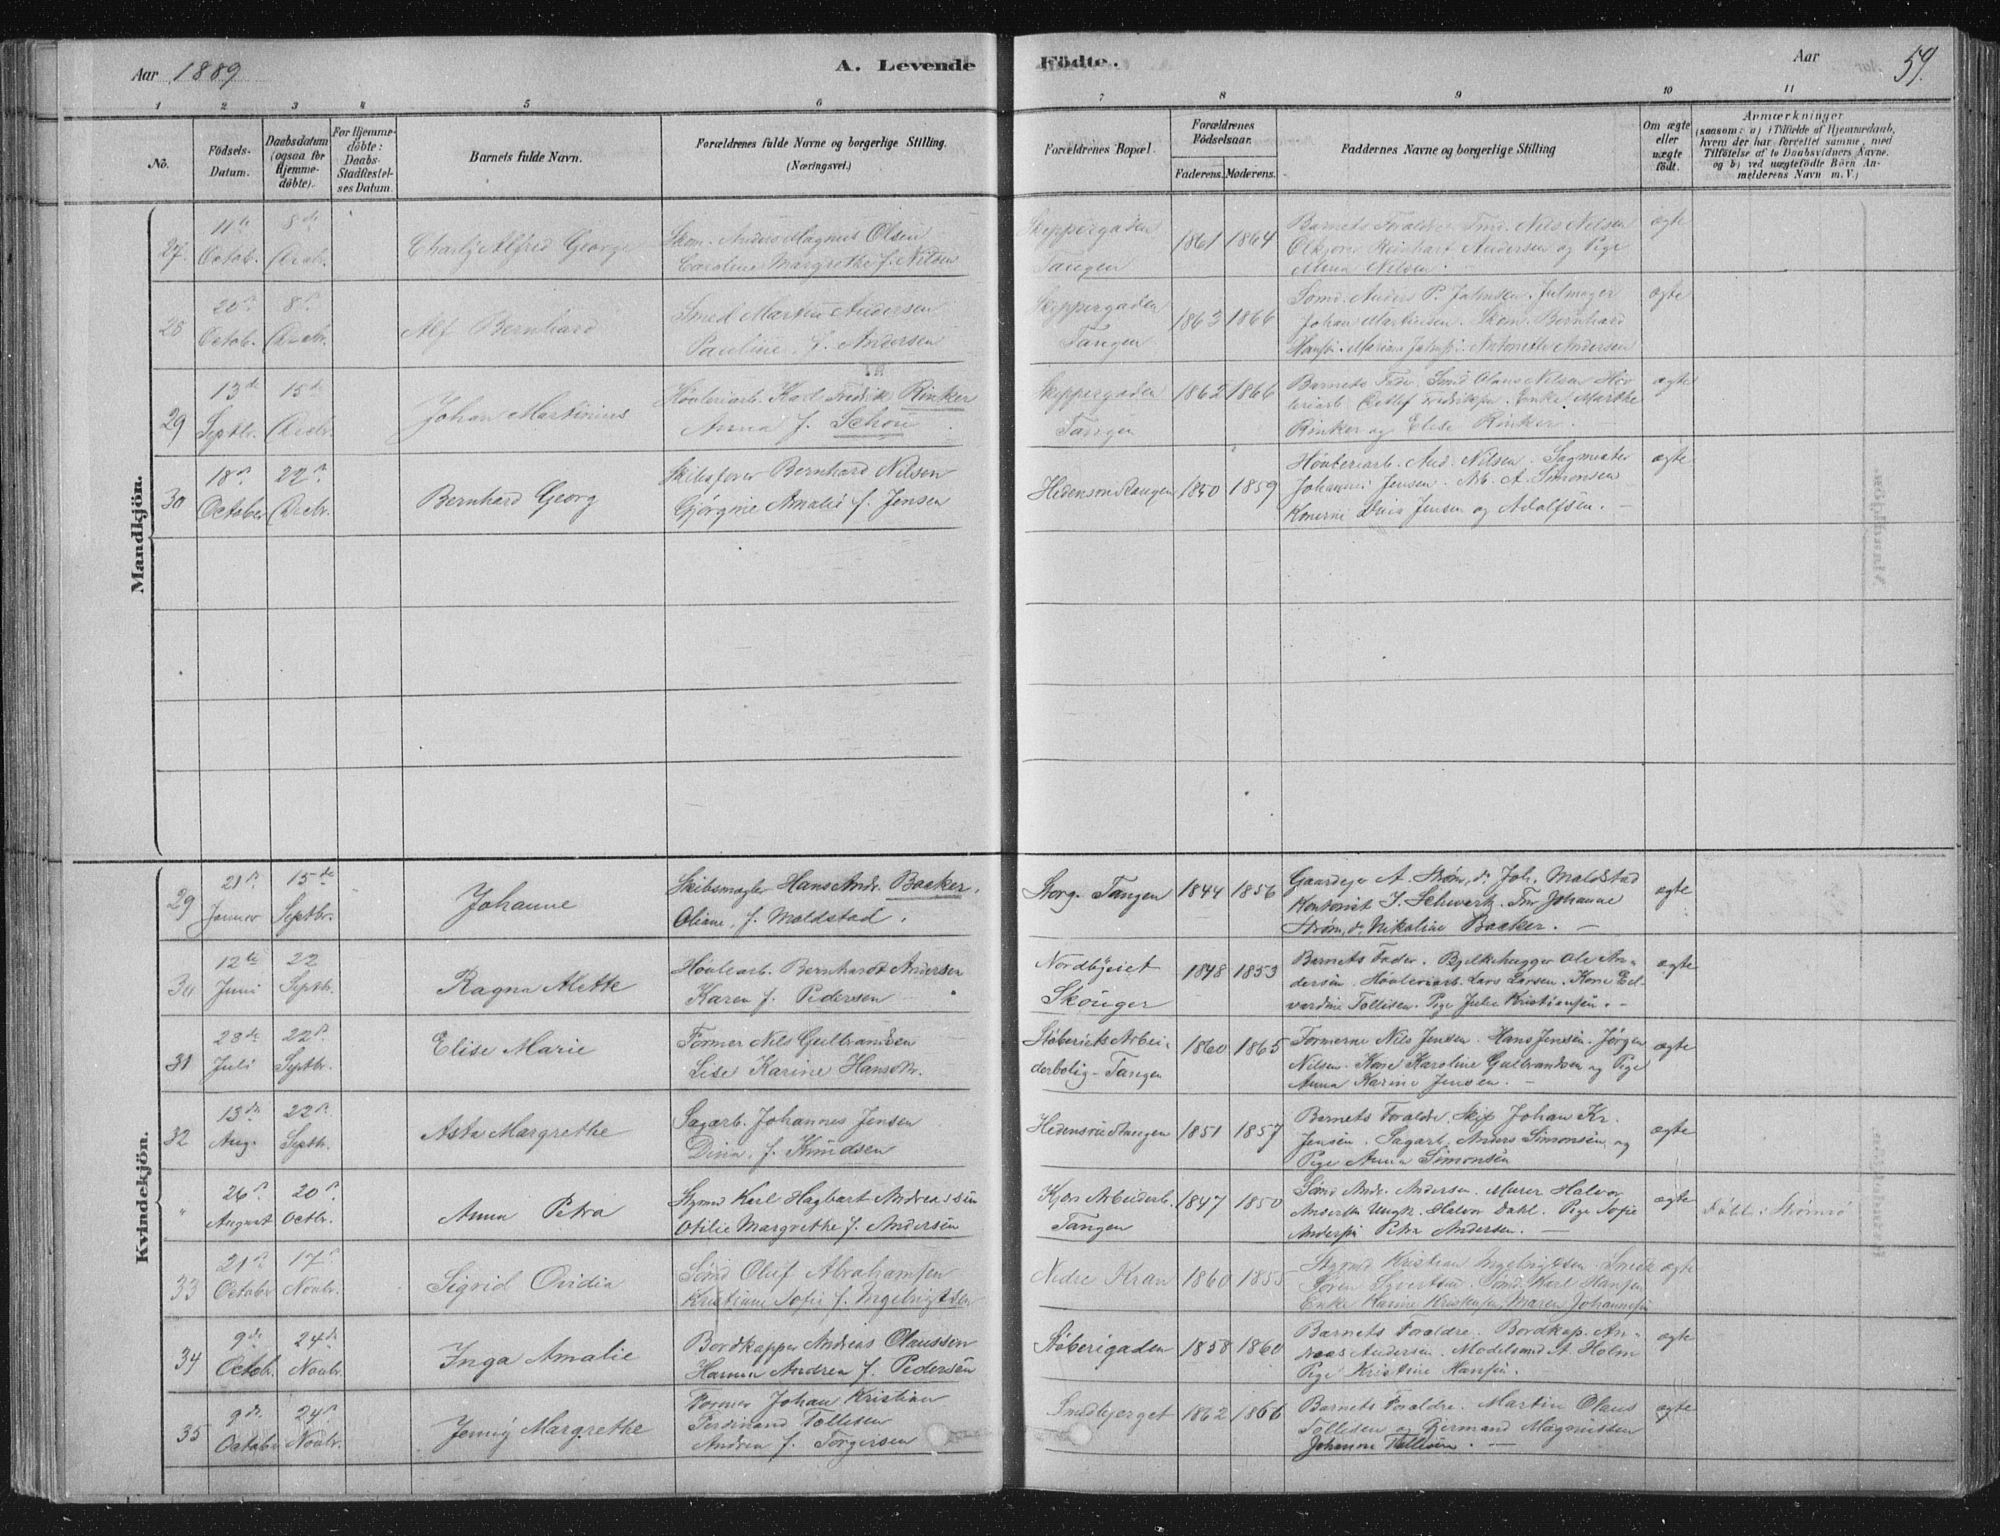 Aar 1889
A. Levende Födte.
Aar
59.
1 2 3 4 5 6 7 8 9 10 11
No.
Födsels-
Datum.
Daabsdatum
(ogsaa for
Hjemme-
döbte).
For Hjemme-
döbte:
Daabs-
Stadfæstel-
ses Datum.
Barnets fulde Navn.
Forældrenes fulde Navne og borgerlige Stilling.
(Næringsvei.)
Forældrenes Bopæl.
Forældrenes
Födselsaar.
Faderens. Moderens.
Faddernes Navne og borgerlige Stilling
Om ægte
eller
uægte
födt.
Anmærkninger
(saasom: a) i Tilfælde af Hjemmedaab,
hvem der har forrettet samme, med
Tilföielse af to Daabsvidners Navne.
og b) ved uægtefödte Börn An-
melderens Navn m. V.)
Mandkjön.
27. 11te Octob. 8de Decbr.
Charly Alfred George
Skom. Anders Magnus Olsen
Caroline Margrethe f. Nilsen
Skippergaden
Tangen
1861 1864
Barnets Foraldre Smd. Nils Nilsen
Reinhart Andersen og Pige
Nilsen.
ægte
28 20de Octob. 8de Decbr.
Alf Bernhard
Smed Martin Andersen
Pauline f. Andersen
Skippergaden
Tangen
1863 1866
Sømd. Anders P. Jahnsen.
Johan Martinsen. Skom. Bernhard
Antonette Andersen
ægte
29 13de Septbr. 15de Decbr.
Johan Martinius
Høvleriarb. Karl Fredrik Rinker
Anna f. Schou
Skippergaden
Tangen
1862 1866
Barnets Fader. Smd Olaus Nilsen Høv
leriarb. Detlef Fredriksen. Enke Marthe
Rinker og Elise Rinker.
ægte
30 18de October 22de Decbr.
Bernhard Georg
Skibsfører Bernhard Nilsen
Gjørgine Amalie f. Jensen
Hedensrue Tangen
1850 1859
Høvleriarb. And. Nilsen. Sagmester
Johannes Jensen. Arb. A. Simonsen
Konerne Dina Jensen og Adolfsen. -
ægte
Kvindekjön.
29 21de Januar 15de Septbr.
Johanne
Skibsmægler Hans Andr. Backer.
Oliane, f. Moldstad.
Storg. Tangen
1844 1856
Gaardejer A. Strøm, do. Joh. Moldstad
Kontorist I. Schwartz. Frue Johanne
Strøm, do. Nikoline Backer. -
ægte
30 12te Juni 22 Septbr.
Ragna Alette
Høvlearb. Bernhardt Andersen
Karen f. Pedersen
Nordbyeiet
Skouger
1848 1853
Barnets Fader. Bjelkehugger Ole An-
dersen. Høvleriarb. Lars Larsen. Kone Ed-
vardine Tollisen. Pige Julie Kristiansen. -
ægte
31 28de Juli 22de Septbr.
Elise Marie
Former Nils Gulbrandsen
Lise Karine Hansdtr.
Støberiets Arbei-
derbolig - Tangen
1860 1865
Formerne Nils Jensen. Hans Jensen. Jørgen
Nilsen. Kone Karoline Gulbrandsen og Pige
Anna Karine Jensen. -
ægte
32 13de Aug. 22de Septbr.
Asta Margrethe
Sagarb. Johannes Jensen
Dina. f. Knudsen
Hedensrue Tangen
1851 1857
Barnets Foraldre. Johan Kr.
Jensen. Sagarb. Anders Simonsen og
Pige Anna Simonsen
ægte
" 26de August 20de Octbr.
Anna Petra
Styrmd Karl Hagbart Andreassen
Otilie Margrethe f. Andersen
Kjøs Arbeiderb.
Tangen
1847 1850
Sømd Andr. Andersen. Murer Halvor
Andersen Ungk. Halvor Dahl. Pige Sofie
Andersen Petra Andersen. -
ægte
Født i Strømsø
33 21de October 17de Novbr.
Sigrid Ovidia
Sømd Oluf Abrahamsen
Kristiane Sofie f. Ingebrigtsen
Nedre Kran
1860 1855
Styrmd Kristian Ingebrigtsen. Smed
Søren Syvertsen. Sømd Karl Hansen
Enke Karine Kristensen. Maren Johannesen
ægte
34 9de Octob. 24de Novbr.
Inga Amalie
Bordkapper Andreas Olaussen
Hanna Andrea f. Pedersen
Støberigaden
1858 1860
Barnets Foraldre. Bordkap. An-
dreas Andersen. A. Holm
Pige Kristine Hansen.
ægte
35 9de October 24de Novbr.
Jenny Margrethe
Former Johan Kristian
Ferdinand Tollisen
Andrea f. Torgersen
Smedbjerget
1862 1866
Barnets Foraldre. Martin Olaus
Tollisen og Gjermand Magnussen
Johanne Tollisen. -
ægte